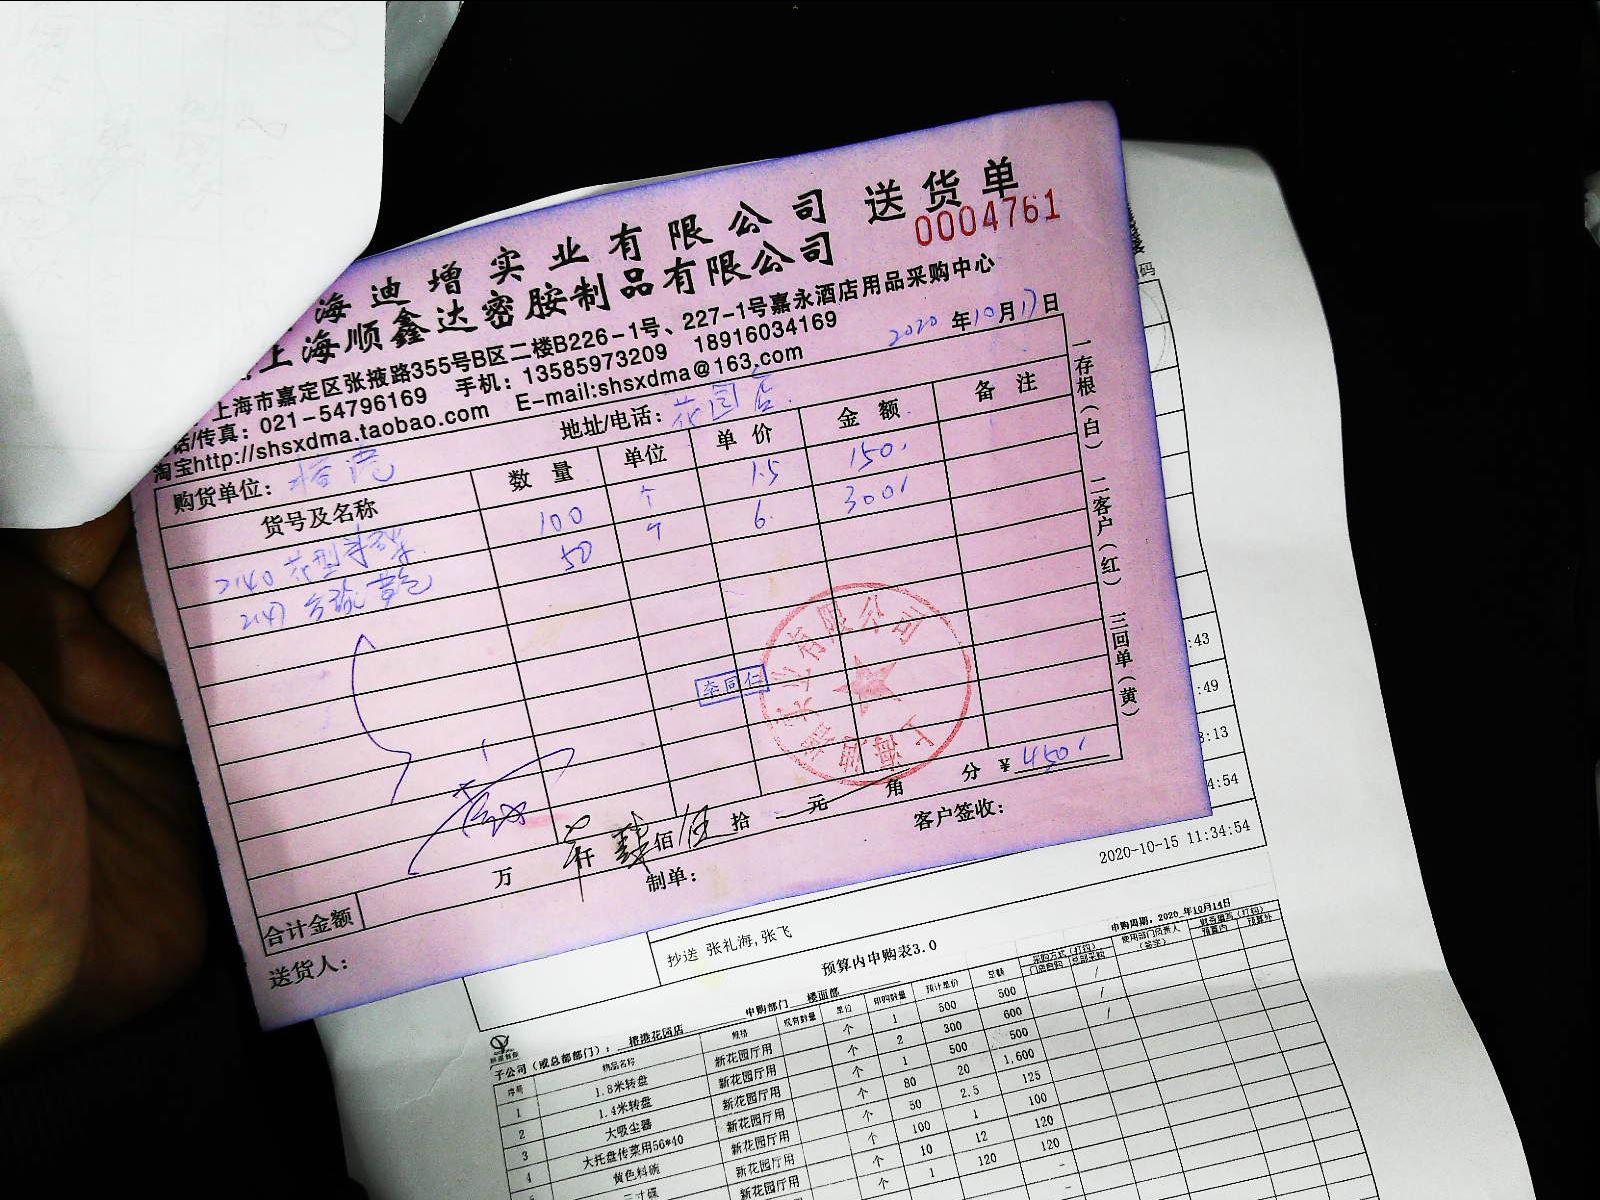 海迪增实业有限公司 送货单
上海顺鑫达密胺制品有限公司
0004761
上海市嘉定区张掖路355号B区二楼B226-1号、227-1号嘉永酒店用品采购中心
话/传真：021-54796169 手机：13585973209 18916034169
淘宝http://shsxdma.taobao.com E-mail:shsxdma@163.com
2020 年10月17日
购货单位： 地址/电话：花园店
货号及名称 数量 单位 单价 金额 备注
2140 花型 100 个 1.5 150
2147 黄色 50 个 6 300
一存根（白） 二客户（红） 三回单（黄）
李同仁
上海迪增实业有限公司
合计金额 万 仟 肆 佰 伍 拾 元 角 分 ¥450
送货人： 制单： 客户签收：
码
:43
:49
:13
4:54
2020-10-15 11:34:54
抄送 张礼海,张飞
预算内申购表3.0
申购周期：2020 年10月14日
子公司（或总部部门）： 榕港花园店 申购部门 楼面部
序号 物品名称 规格 现有数量 单位 申购数量 预计单价 总额 门店自购 总部采购 使用部门负责人（签字） 预算内 预算外
1 1.8米转盘 新花园厅用 个 1 500 500 /
2 1.4米转盘 新花园厅用 个 2 300 600 /
3 大吸尘器 新花园厅用 个 1 500 500 /
4 大托盘传菜用56*40 新花园厅用 个 80 20 1,600
黄色料碗 新花园厅用 个 50 2.5 125
寸碟 新花园厅用 个 100 1 100
新花园厅用 个 10 12 120
个 1 120 120